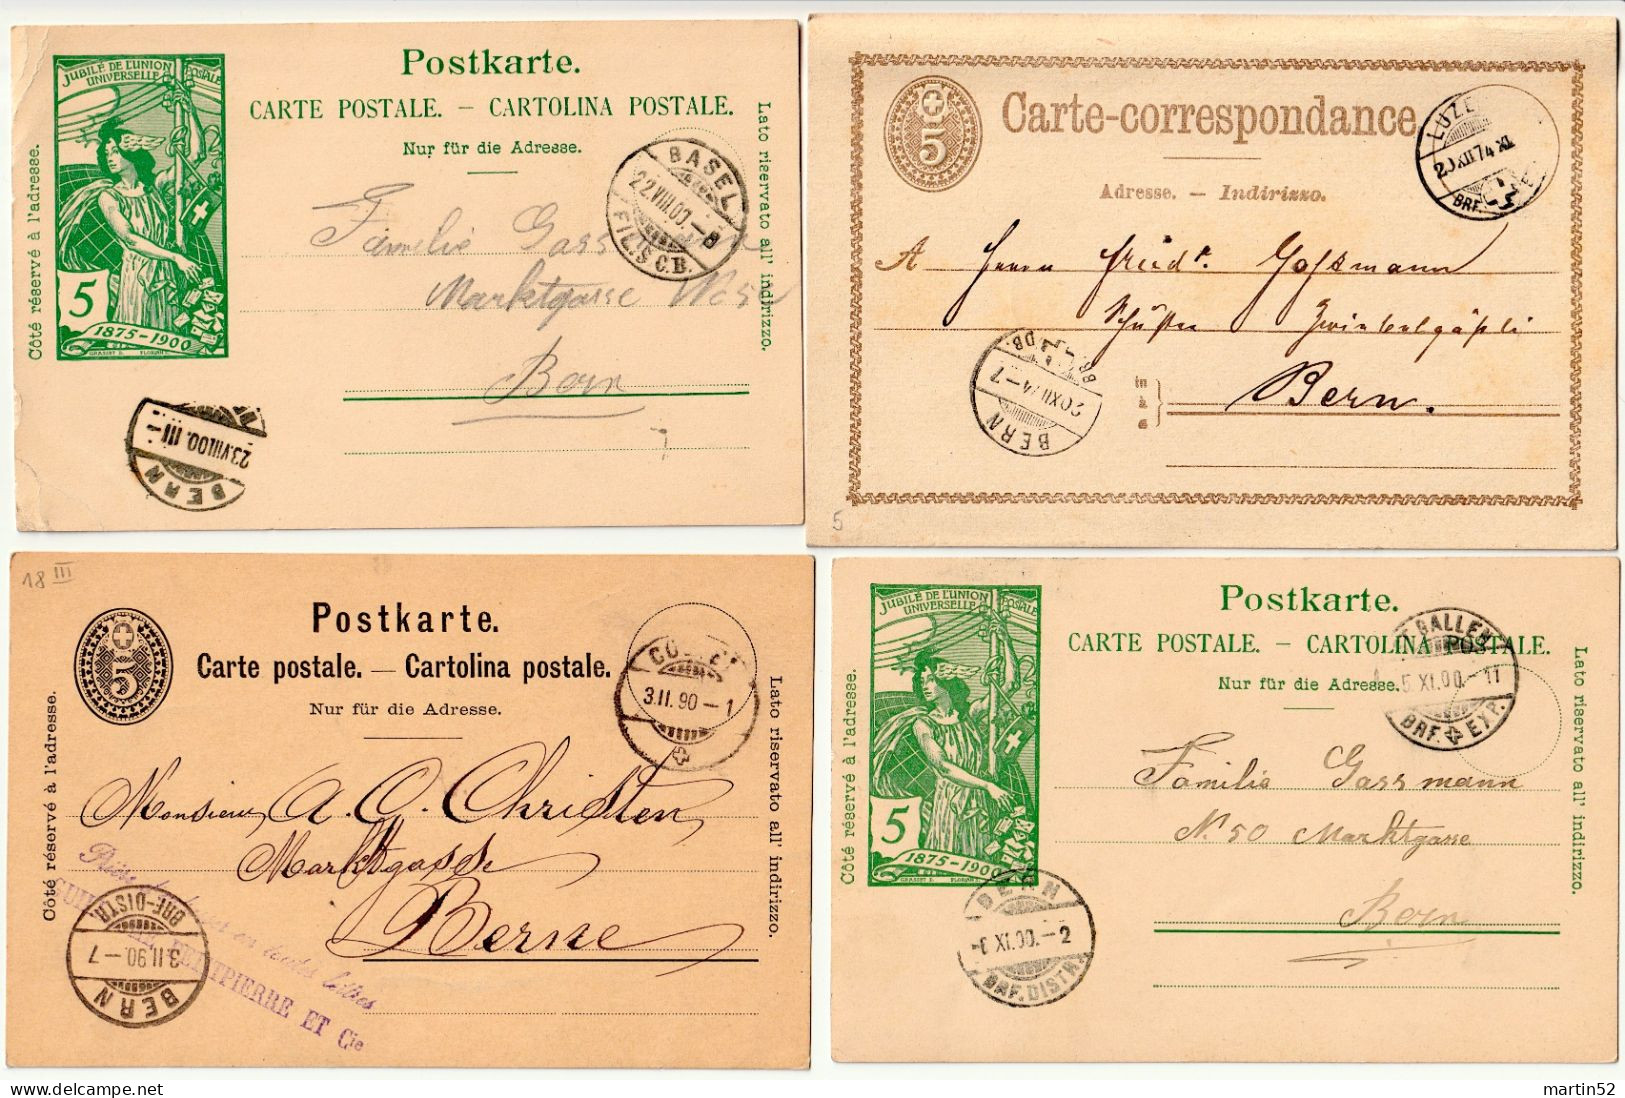 JUBILÉ DE L'UNION
UNIVERSELLE POSTALE
5
1875-1900
GRASSET E. FLORIAN
Côté réservé à l'adresse.
Postkarte.
CARTE POSTALE. — CARTOLINA POSTALE.
Nur für die Adresse.
BASEL
22.VIII.00.-8
FIL. S.C.B.
Familie Gassmann
Marktgasse No 50
Bern
Lato riservato all' indirizzo.
BERN
23.VIII.00. III-
5
Carte-correspondance
Adresse. — Indirizzo.
LUZE
20 XII 74 XI
BRF. E
A Herrn Friedr. Gassmann
Zwiebelgässli
in
à
a
Bern.
BERN
20 XII 74-7
5
18 III
5
Postkarte.
Carte postale. — Cartolina postale.
Nur für die Adresse.
3.II.90-1
Côté réservé à l'adresse.
Lato riservato all' indirizzo.
Monsieur A. O. Christen
Marktgasse
Berne
BRF-DISTR.
3.II.90.-7
BERN
en toutes lettres
PETITPIERRE ET Cie
JUBILÉ DE L'UNION
UNIVERSELLE POSTALE
5
1875-1900
GRASSET E. FLORIAN
Côté réservé à l'adresse.
Postkarte.
CARTE POSTALE. — CARTOLINA POSTALE.
Nur für die Adresse.
GALLEN
5.XI.00.-11
BRF. EXP.
Familie Gassmann
No 50 Marktgasse
Bern
Lato riservato all' indirizzo.
BERN
-6.XI.00.-2
BRF.DISTR.
martin52